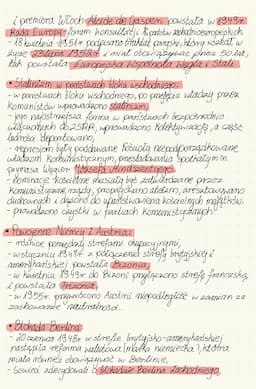 i premiera Włoch Alcide de Gasperi powstała w 1949r.
Rada Europy - forum konsultacji państw zachodnioeuropejskich
- 18 kwietnia 1951r. podpisano traktat paryski, który wszedł w
życie 23 lipca 1952r. i miał obowiązywać przez 50 lat,
tak powstała Europejska Wspólnota Węgla i Stali
• Stalinizm w państwach bloku wschodniego:
- w państwach bloku wschodniego, po przejęciu władzy przez
komunistów wprowadzono stalinizm,
- jego najostrzejsza forma w państwach bezpośrednio
do ZSRR, wprowadzono kolektywizację, a część
deportowano,
- represjom były poddawane Kościoły niepodporządkowane
władzom komunistycznym, prześladowania spotkały m.in.
prymasa Węgier Józsefa Mindszentyego,
- nominacje kościelne musiały być zatwierdzane przez
komunistyczne rządy, propagowano ateizm, aresztowywano
duchownych i dążono do upaństwowienia kościelnych majątków,
prowadzono czystki w partiach komunistycznych.
• Powojenne Niemcy i Austria:
- różnice pomiędzy strefami okupacyjnymi,
- w styczniu 1947r. z połączenia strefy brytyjskiej i
amerykańskiej powstała Bizonia,
- w kwietniu 1949r. do Bizonii przyłączono strefę francuską,
i powstała Trizonia,
- w 1955r. przywrócono Austrii niepodległość w zamian za
zachowanie neutralności.
• Blokada Berlina:
- 20 czerwca 1948r. w strefie brytyjsko-amerykańskiej
nastąpiła reforma walutowa (marka niemiecka), która
miała również obowiązywać w Berlinie,
- Sowieci zdecydowali o blokadzie Berlina Zachodniego,